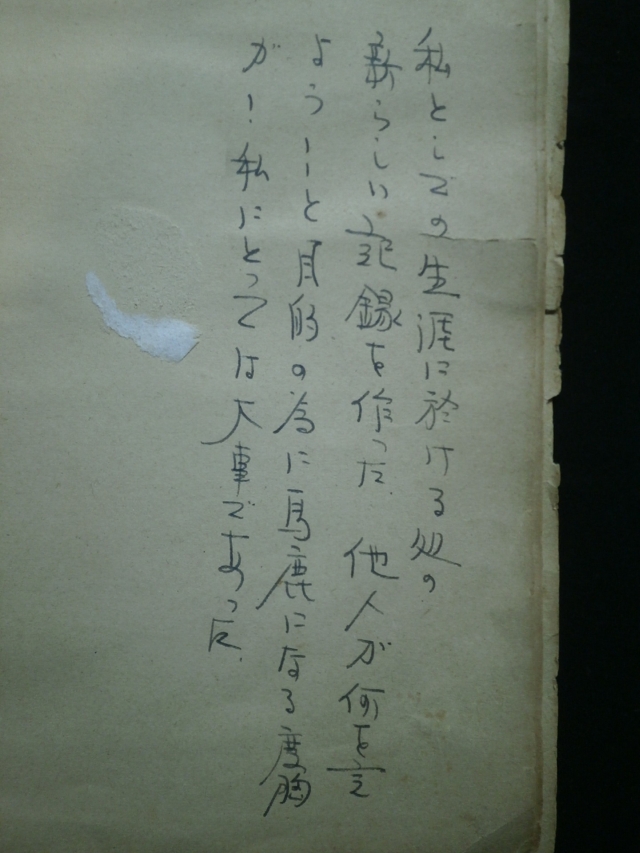 私としての生涯に於ける処の
新らしい記録を作った 他人が何を言
ようーと目的の為に馬鹿になる度胸
が！私にとっては大事であった.